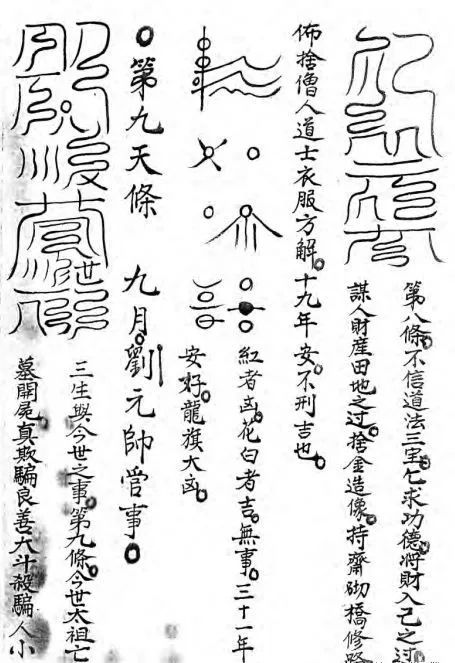 第八條。不信道法三宝乞求功德。将財入己之过。
謀人財産田地之过。捨金造像。持齋砌橋修路
佈捨僧人道士衣服方解。十九年安。不刑吉也。
紅者凶。花白者吉。無事。三十一年
安好。龍旗大凶。
第九天條 九月。劉元帥管事。
三生與今世之事。第九條。今世太祖亡
墓開屍真欺騙良善大斗殺騙人小